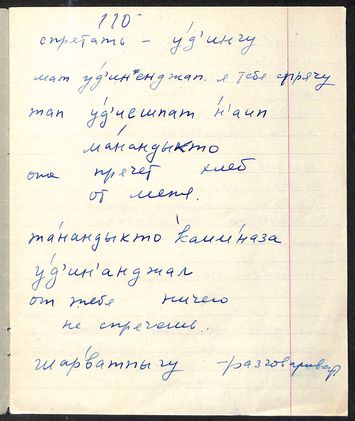 110
спретать – у́д'ингу
мат у́д'ин'енджап. я тебя спрячу
тап у́д'иешпат н'аип
ма́нандыкто
она прячет хлеб
от меня.
та́нандыкто каим́наза
у́д'ин'анджал
от тебя ничего
не спречешь.
шар'ватпыгу – разговаривать